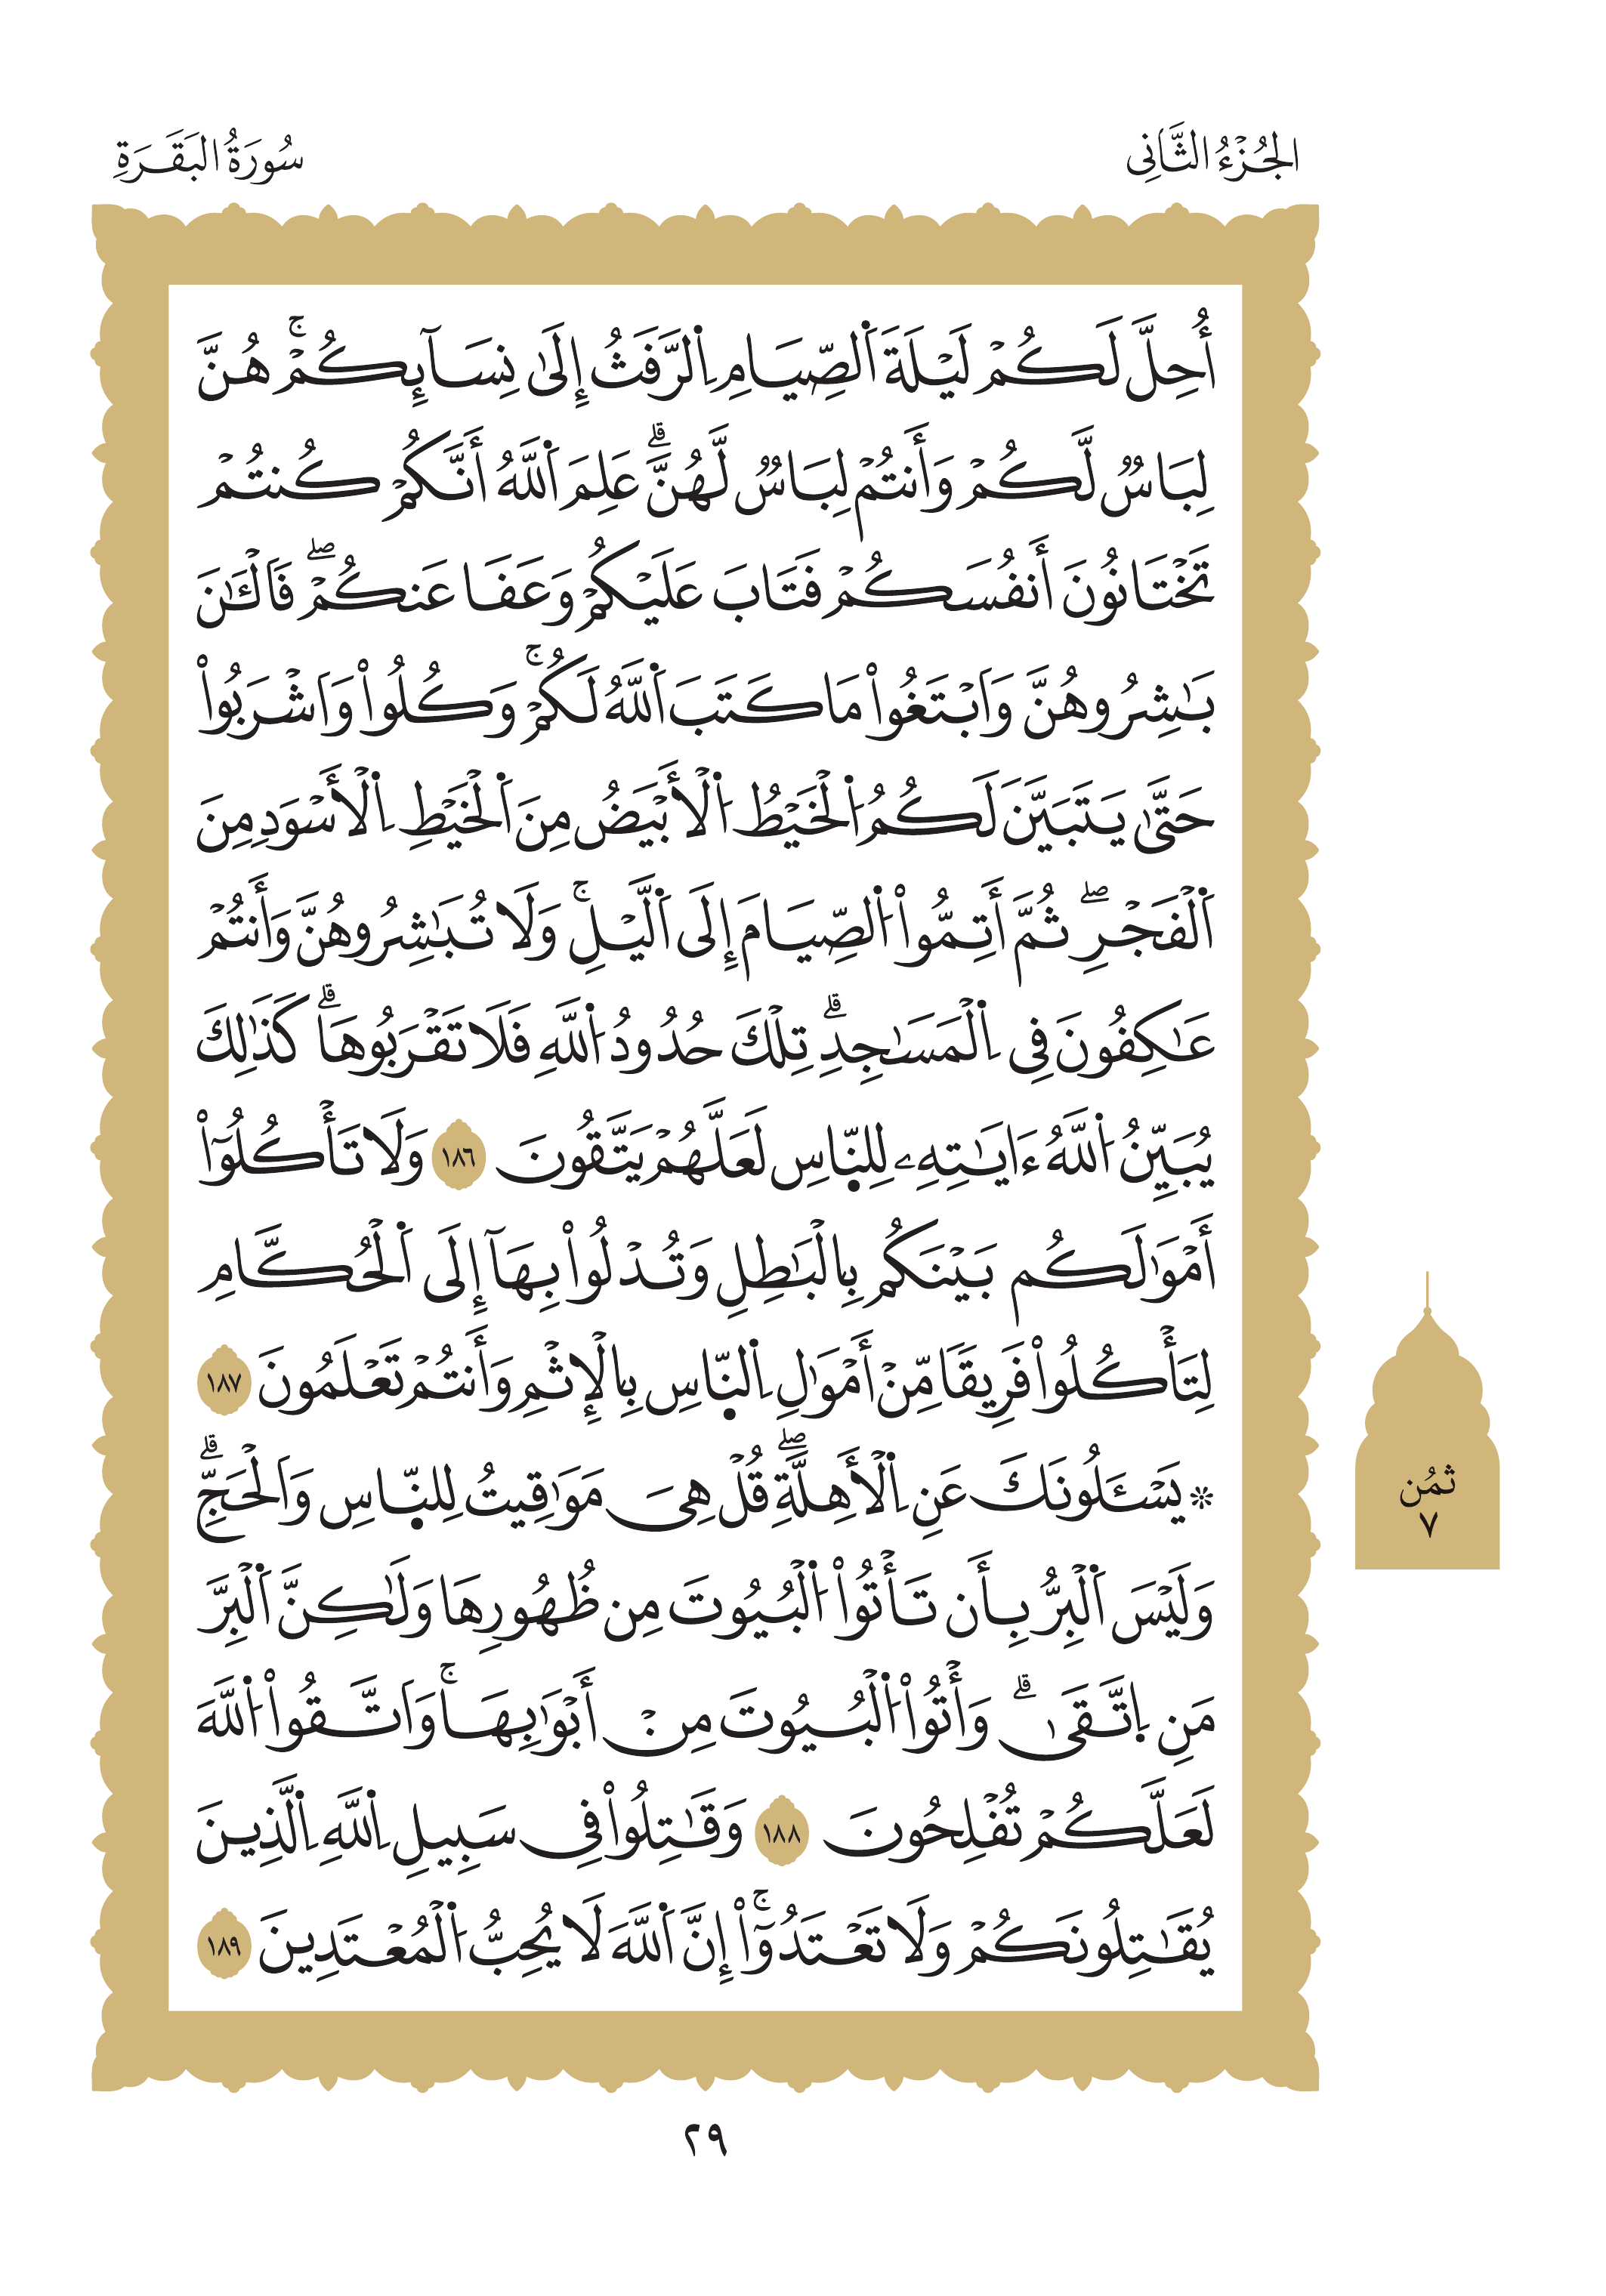 الجُزْءُ الثَّانِي
سُورَةُ البَقَرَةِ
أُحِلَّ لَكُمْ لَيْلَةَ اَ۬لصِّيَامِ اِ۬لرَّفَثُ إِلَىٰ نِسَآئِكُمْۚ هُنَّ
لِبَاسٞ لَّكُمْ وَأَنتُمْ لِبَاسٞ لَّهُنَّۗ عَلِمَ اَ۬للَّهُ أَنَّكُمْ كُنتُمْ
تَخْتَانُونَ أَنفُسَكُمْ فَتَابَ عَلَيْكُمْ وَعَفَا عَنكُمْۖ فَاَلْـَٰٔنَ
بَٰشِرُوهُنَّ وَاَبْتَغُواْ مَا كَتَبَ اَ۬للَّهُ لَكُمْۚ وَكُلُواْ وَاَشْرَبُواْ
حَتَّىٰ يَتَبَيَّنَ لَكُمُ اُ۬لْخَيْطُ اُ۬لْأَبْيَضُ مِنَ اَ۬لْخَيْطِ اِ۬لْأَسْوَدِ مِنَ
اَ۬لْفَجْرِۖ ثُمَّ أَتِمُّواْ اُ۬لصِّيَامَ إِلَى اَ۬لَّيْلِۚ وَلَا تُبَٰشِرُوهُنَّ وَأَنتُمْ
عَٰكِفُونَ فِي اِ۬لْمَسَٰجِدِۗ تِلْكَ حُدُودُ اُ۬للَّهِ فَلَا تَقْرَبُوهَاۗ كَذَٰلِكَ
يُبَيِّنُ اُ۬للَّهُ ءَايَٰتِهِۦ لِلنَّاسِ لَعَلَّهُمْ يَتَّقُونَ ١٨٦ وَلَا تَأْكُلُوٓاْ
أَمْوَٰلَكُم بَيْنَكُم بِالْبَٰطِلِ وَتُدْلُواْ بِهَآ إِلَى اَ۬لْحُكَّامِ
لِتَأْكُلُواْ فَرِيقٗا مِّنْ أَمْوَٰلِ اِ۬لنَّاسِ بِالْإِثْمِ وَأَنتُمْ تَعْلَمُونَ ١٨٧
۞ يَسْـَٔلُونَكَ عَنِ اِ۬لْأَهِلَّةِۖ قُلْ هِيَ مَوَٰقِيتُ لِلنَّاسِ وَاَلْحَجِّۗ
وَلَيْسَ اَ۬لْبِرُّ بِأَن تَأْتُواْ اُ۬لْبُيُوتَ مِن ظُهُورِهَا وَلَٰكِنَّ اَ۬لْبِرَّ
مَنِ اِ۪تَّقَىٰۗ وَأْتُواْ اُ۬لْبُيُوتَ مِنْ أَبْوَٰبِهَاۚ وَاَتَّقُواْ اُ۬للَّهَ
لَعَلَّكُمْ تُفْلِحُونَ ١٨٨ وَقَٰتِلُواْ فِي سَبِيلِ اِ۬للَّهِ اِ۬لَّذِينَ
يُقَٰتِلُونَكُمْ وَلَا تَعْتَدُوٓاْۚ إِنَّ اَ۬للَّهَ لَا يُحِبُّ اُ۬لْمُعْتَدِينَ ١٨٩
ثُمُن
٧
٢٩